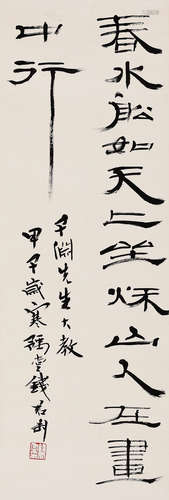 春水船如天上坐秋山人在畫
中行
子淵先生大教
甲午歲寒 錢君匋